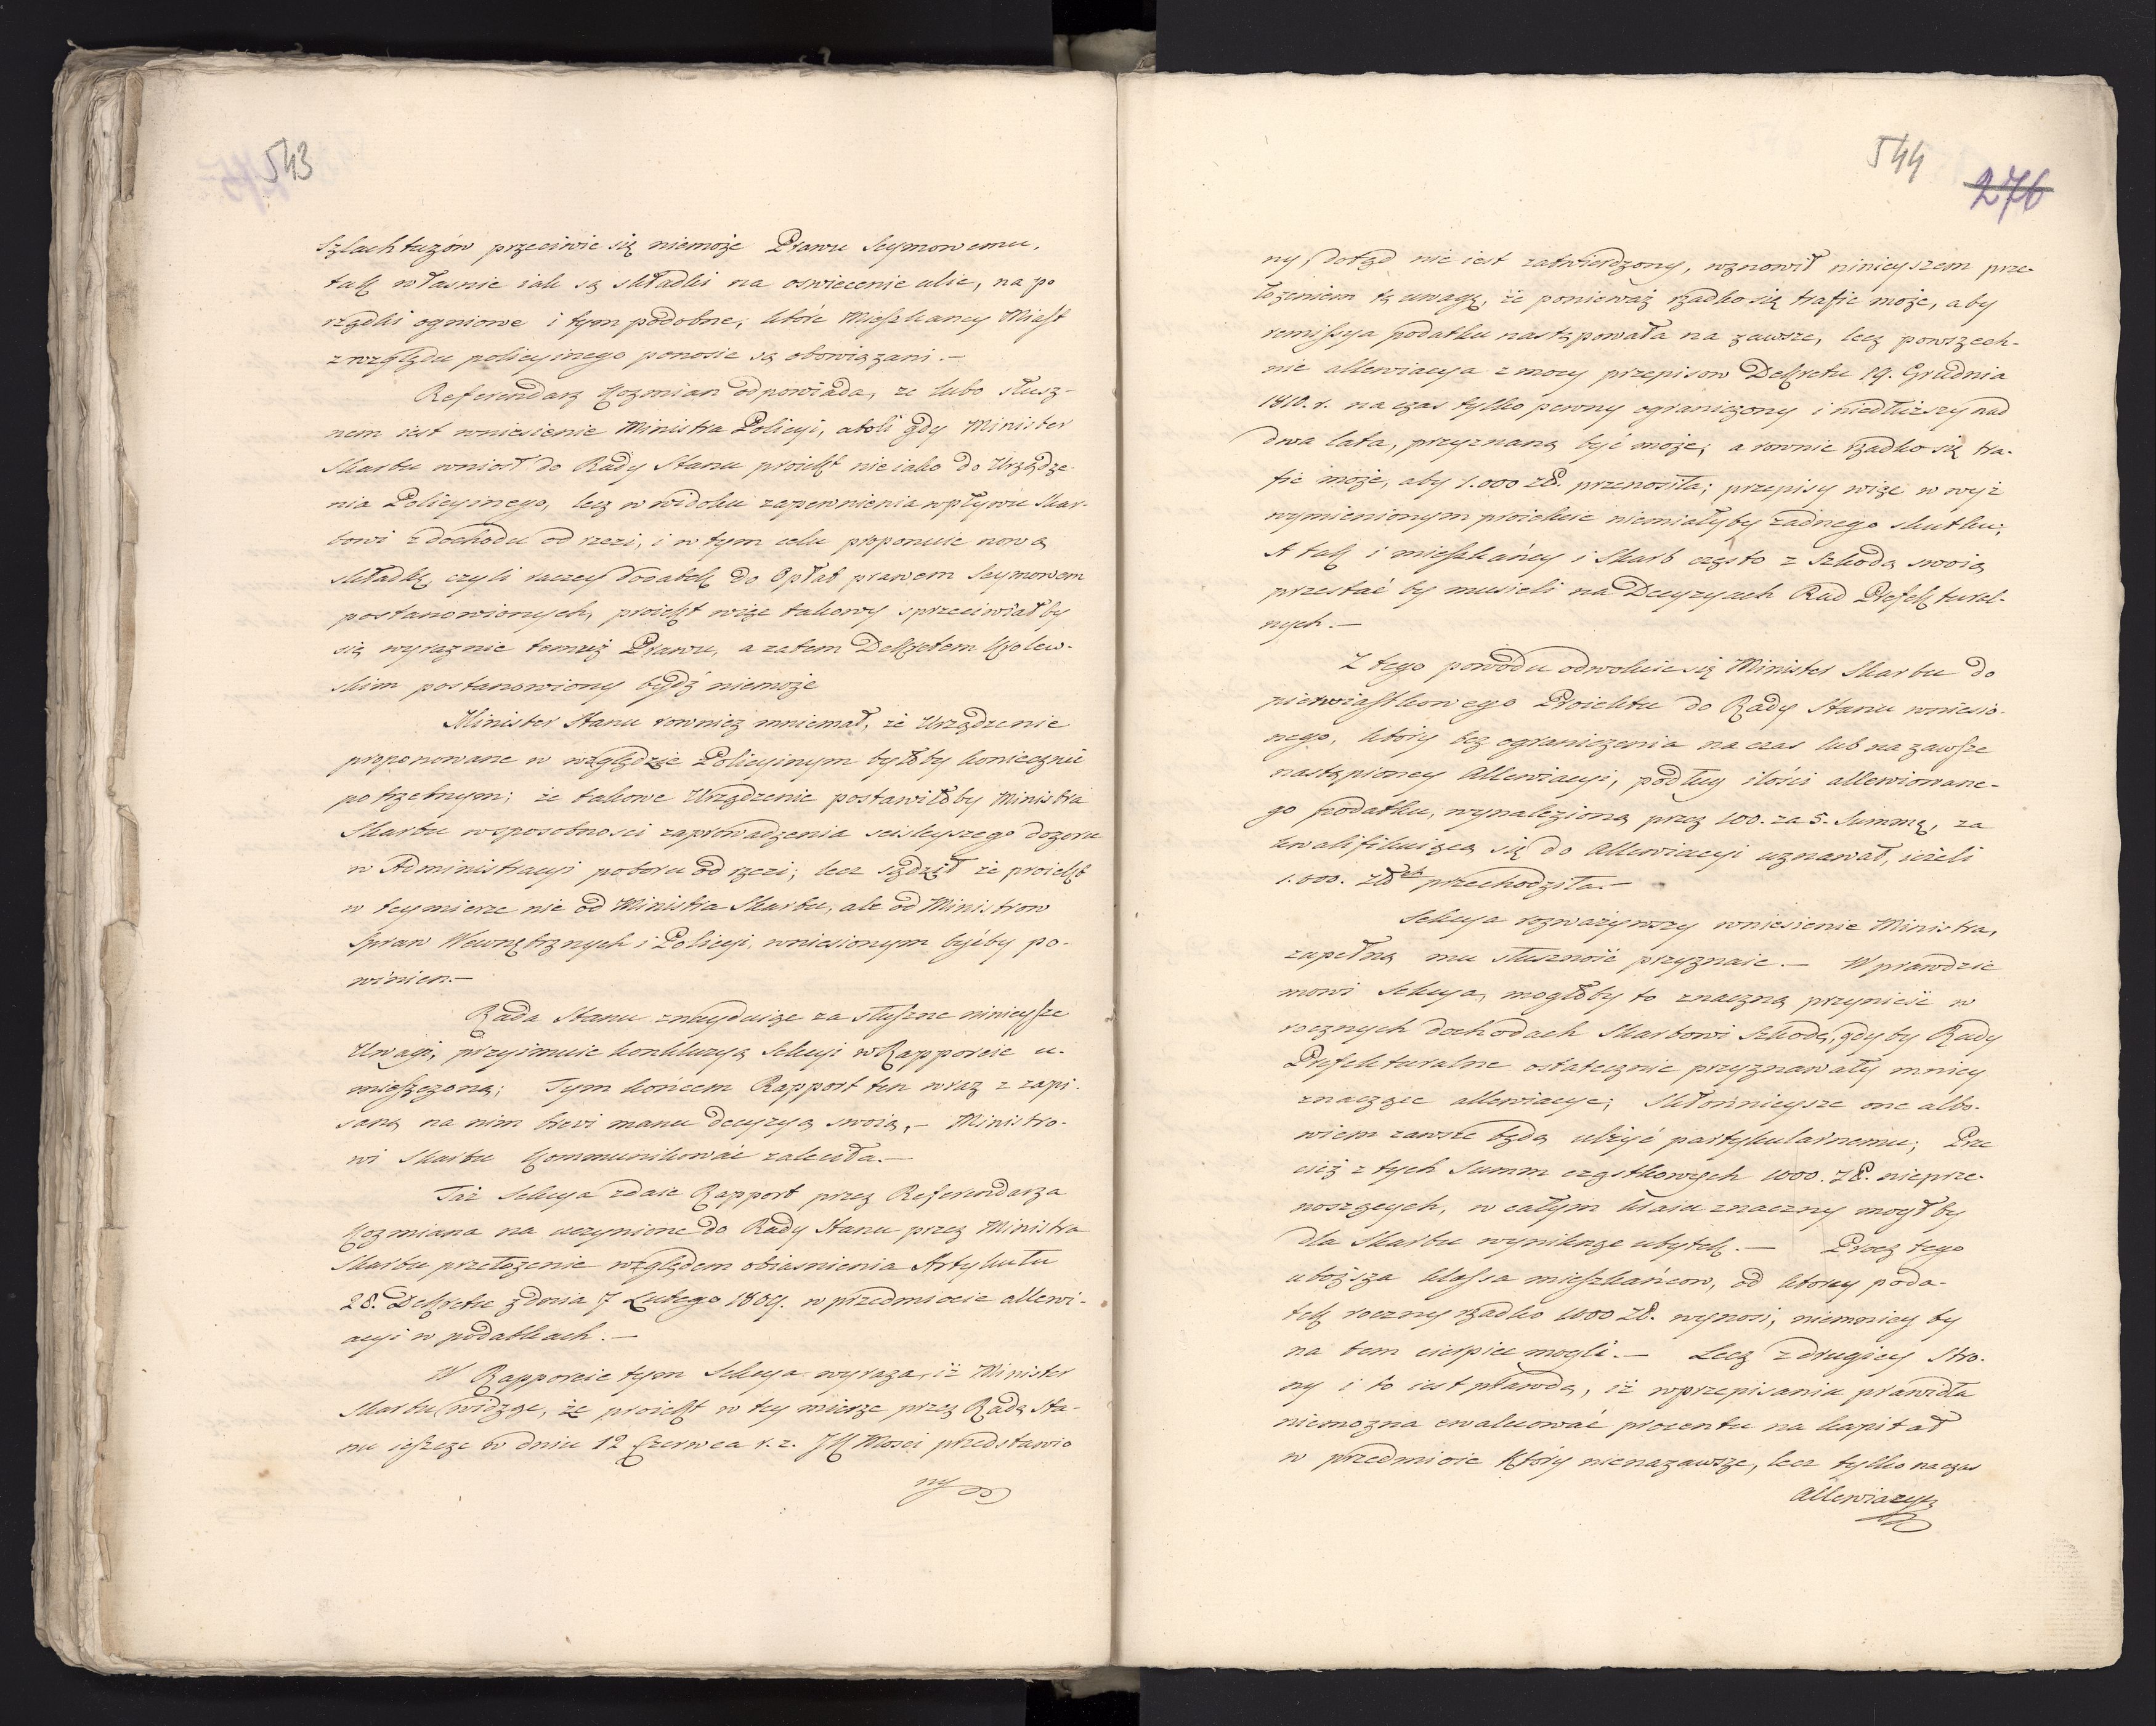 543
szlachtuzów przeciwić się niemoże Prawu Seymowemu,
tak właśnie iak są składki na oswiecenie ulic, na po
rządki ogniowe i tym podobne, które Mieszkancy Miast
z względu policyinego ponosić są obowiązani. —
Referendarz Kozmian odpowiada, że lubo słusz-
nem iest wniesienie Ministra Policyi, atoli gdy Minister
Skarbu wniosł do Rady Stanu proiekt nie iako do Urządze-
nia Policyinego, lecz w widoku zapewnienia wpływu Skar-
bowi z dochodu od rzezi, i w tym celu proponuie nową
składkę, czyli raczey dodatek do Opłat prawem Seymowem
postanowionych, proiekt więc takowy sprzeciwiałby
się wyraznie temuż Prawu, a zatem Dekretem Krolew-
skim postanowiony bydź niemoże
Minister Stanu rownież mniemał, że Urządzenie
proponowane w względzie Policyinym byłoby koniecznie
potrzebnym; że takowe Urządzenie postawiłoby Ministra
Skarbu w sposobnosci zaprowadzenia scisleyszego dozoru
w Administracyi poboru od rzezi; lecz sądził że proiekt
w tey mierze nie od Ministra Skarbu, ale od Ministrow
Spraw Wewnętrznych i Policyi, wniesionym byćby po-
winien. —
Rada Stanu znayduiąc za słuszne ninieysze
Uwagi, przyimuie konkluzyą Sekcyi w Rapporcie u-
mieszczoną; Tym końcem Rapport ten wraz z zapi-
saną na nim brevi manu decyzyą swoią, — Ministro-
wi Skarbu kommunikować zaleciła. —
Taż Sekcya zdaie Rapport przez Referendarza
Kozmiana na uczynione do Rady Stanu przez Ministra
Skarbu przełożenie względem obiasnienia Artykułu
28. Dekretu z dnia 7 Lutego 1809. w przedmiocie allewi-
acyi w podatkach. —
W Rapporcie tym Sekcya wyraża, iż Minister
Skarbu widząc, że proiekt w tey mierze przez Radę Sta-
nu ieszcze w dniu 12 Czerwca r. z. JK Mosci przedstawio
ny
544
276
ny, dotąd nie iest zatwierdzony, wznowił ninieyszem prze-
łożeniem tę uwagę, że ponieważ rzadko się trafić może, aby
remissya podatku następowała na zawsze, lecz powszech-
nie allewiacya z mocy przepisow Dekretu 19. Grudnia
1810. r. na czas tylko pewny ograniczony i niedłuższy nad
dwa lata, przyznaną być może; a rownie rzadko się tra-
fić może, aby 1.000 zł. przenosiła; przepisy więc w wyż
wymienionym proiekcie niemiałyby żadnego skutku;
A tak i mieszkańcy i Skarb często z szkodą swoią
przestać by musieli na Decyzyach Rad Prefektural-
nych. —
Z tego powodu odwołuie się Minister Skarbu do
pierwiastkowego Proiektu do Rady Stanu wniesio-
nego, który bez ograniczenia na czas lub na zawsze
nastąpioney Allewiacyi, podług ilości allewiowane-
go podatku, wynalezioną przez 100. za 5. Summę, za
kwalifikuiącą się do Allewiacyi uznawał, ieżeli
1.000. złch przechodziła. —
Sekcya rozważywszy wniesienie Ministra,
zupełną mu słuszność przyznaie. — Wprawdzie
mowi Sekcya, mogłoby to znaczną przynieść w
rocznych dochodach Skarbowi szkodę, gdyby Rady
Prefekturalne ostatecznie przyznawały mniey
znaczące allewiacye; skłonnieysze one albo-
wiem zawsze będą ulżyć partykularnemu; Prze
cież z tych Summ cząstkowych 1000. Zł. nieprze-
noszących, w całym kraiu znaczny mogłby
dla Skarbu wyniknąć ubytek. — Procz tego
uboższa klassa mieszkańcow, od ktorey poda-
tek roczny rzadko 1000 Zł. wynosi, niemniey by
na tem cierpieć mogli. — Lecz z drugiey stro-
ny i to iest prawdą, iż w przepisaniu prawidła
niemożna ewaluować procentu na kapitał
w przedmiocie który nie na zawsze, lecz tylko na czas
Allewiacyą